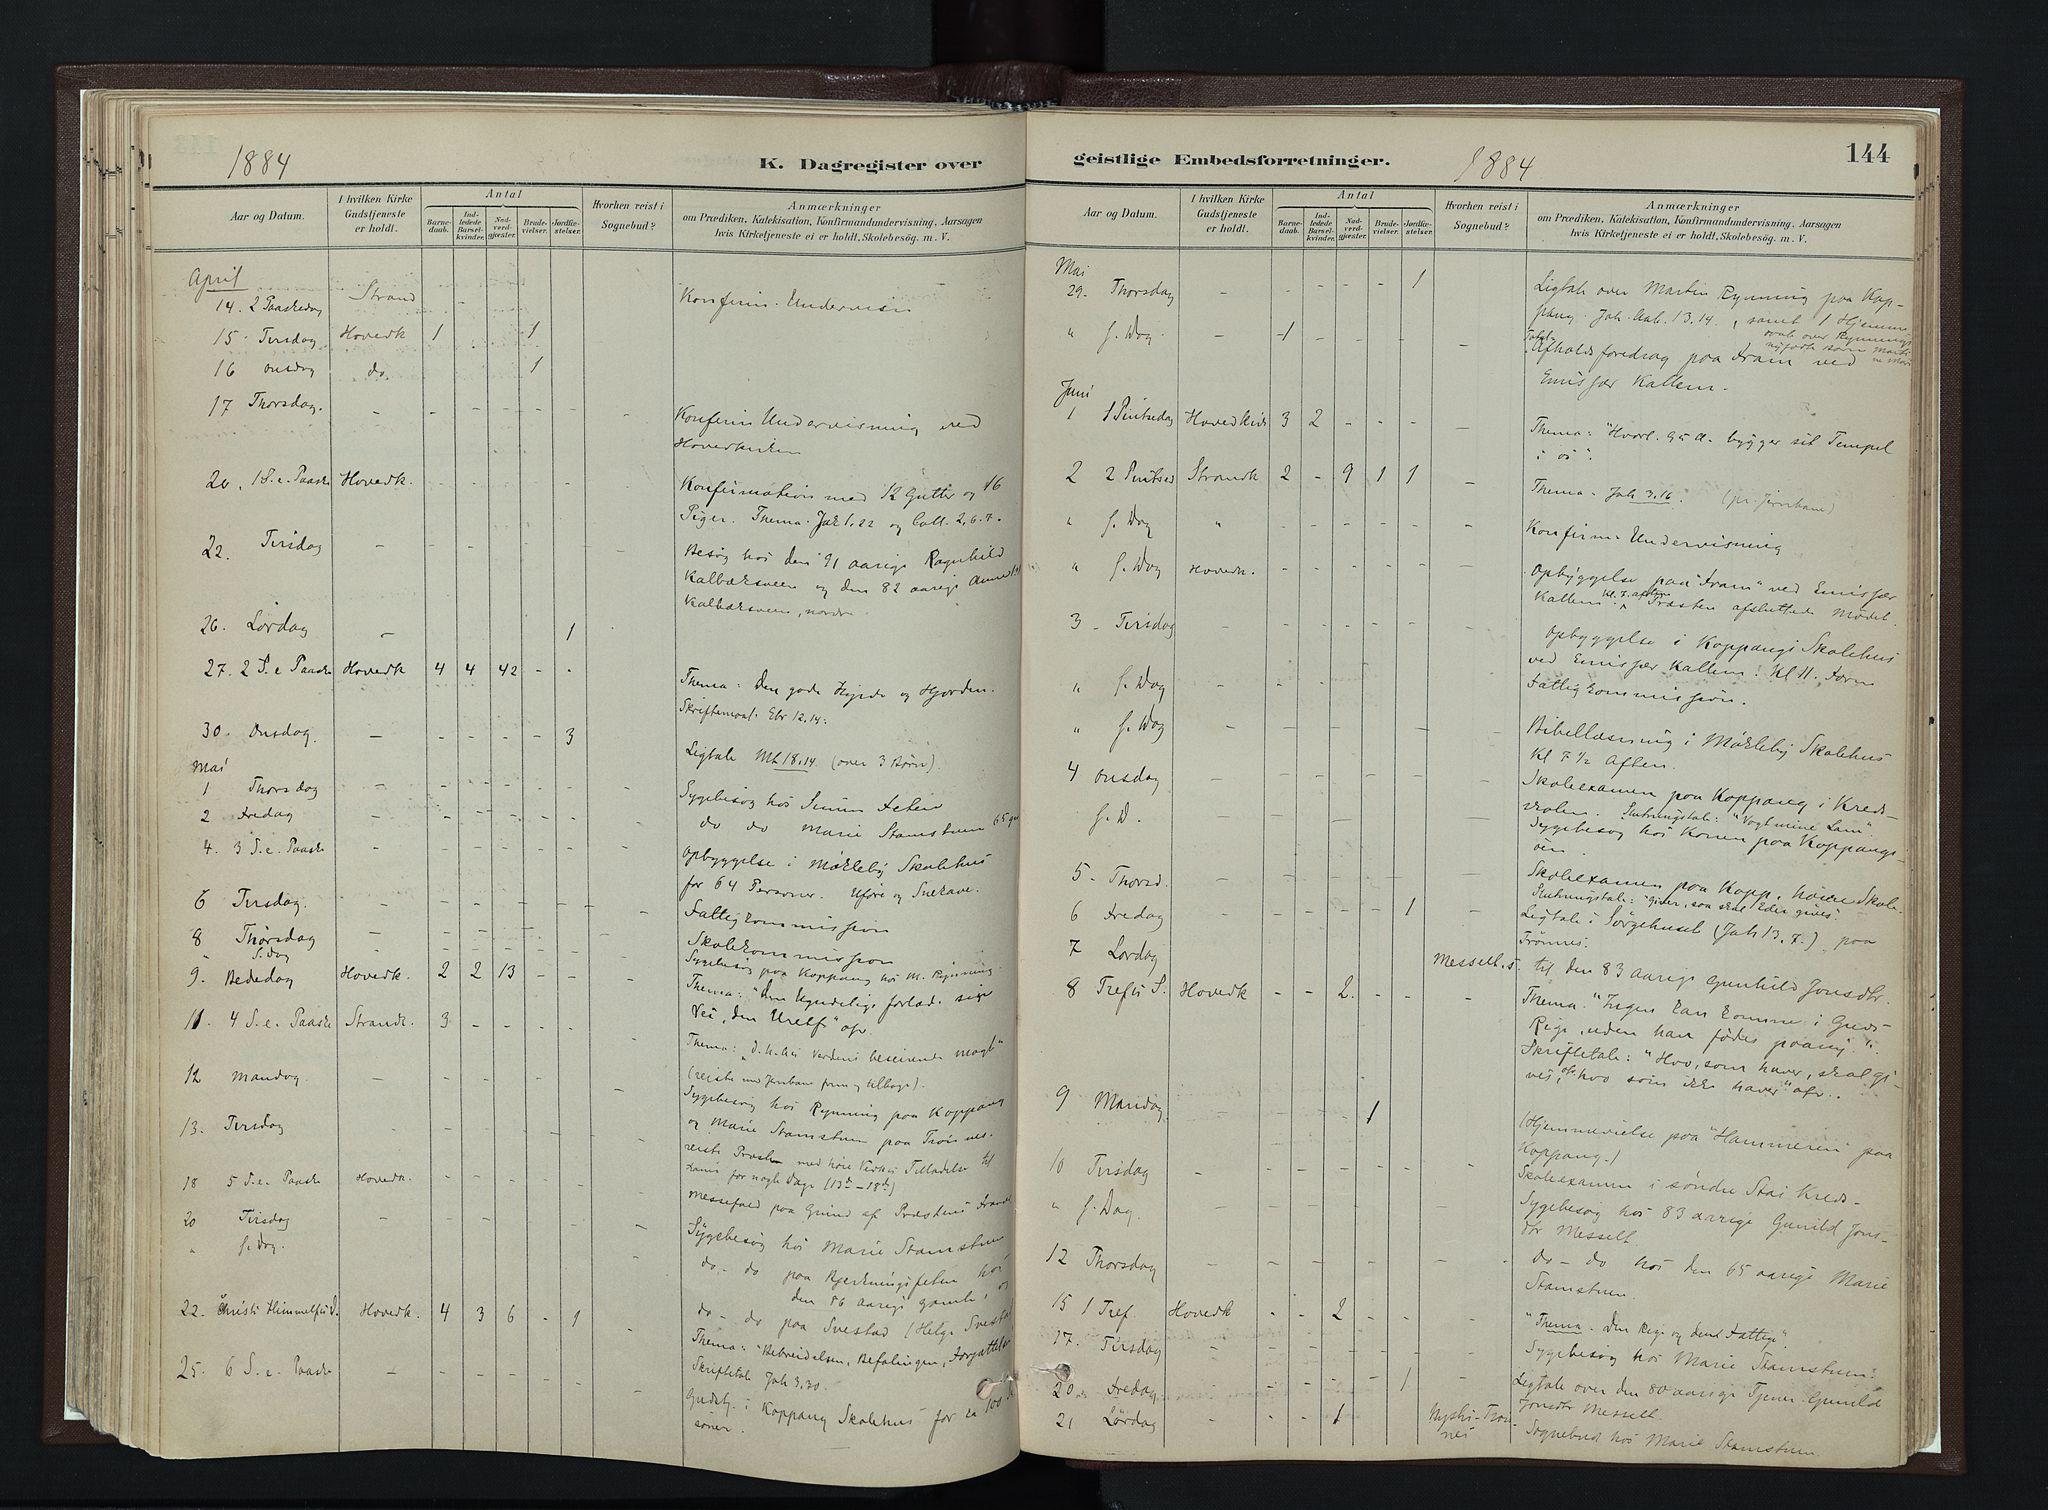 1884
K. Dagregister over
Aar og Datum.
I hvilken Kirke Gudstjeneste er holdt.
Antal
Barnedaab.
Indledede Barselkvinder.
Nadverdgjæster.
Brudevielser.
Jordfæstelser.
Hvorhen reist i Sognebud?
Anmærkninger
om Prædiken, Katekisation, Konfirmandundervisning, Aarsagen
hvis Kirketjeneste ei er holdt, Skolebesøg. m. V.
April
14. 2 Paaskedag Strand - - - Konfirm. Undervisn
15. Tirsdag Hovedk 1 1
16 Onsdag do. 1
17 Thorsdag. - - - - - - - Konfirm Undervisning ved
Hovedkirken
20. 1 S. e. Paaske Hovedk. - - - - - - Konfirmation med 12 Gutter og 16
Piger. Thema. Jak 1.22 og Coll. 2,6.7.
22. Tirsdag - - - - - - - Besøg hos den 91 aarige Ragnhild
og den 82 aarige Anne
26. Lørdag - 1
27. 2 S. e Paaske Hovedk 4 4 42 - - Thema: Den gode Hyrde og Hjorden.
Skriftemaal. Ebr 12.14.
30. Onsdag. - - - - - 3 Ligtale Mt 18.14 (over 3 Børn).
Mai
1 Thorsdag - - - - - - - Sygebesøg hos
2 Fredag - - - - - - do do Marie Stamstrum
4. 3 S. e. Paaske - - - - - - Opbyggelse i Mökleby Skolehus
for 64 Personer. Uføre og Snekave.
6 Tirsdag. - - - - - - - Fattigkommission
8 Thorsdag - - - - - - - Skolekommission
" S. Dag - - - - - - Sygebesøg paa Koppang hos M. Rynning
9. Bededag Hovedk. 2 2 13 - - - Thema: "Den Ugudelige forlade sige
Vei, den Uretf" osv.
11. 4 S. e. Paaske Strandk. 3 - - - - - Thema: Verdens beseirende magt"
(reiste med Jernbane frem og tilbage).
12 Mandag. - - - - - - - Sygebesøg hos Rynning paa Koppang
og Marie Stamstrum paa Trønnes.
13. Tirsdag - - - - - - - reiste Præsten med høie Kirkes Tilladelse til
for nogle Dage (13de-18de)
18 5 S. e. Paaske Hovedk. - - - - - Messefald paa Grund af Præstens Fravær
20 Tirsdag - - - - - - Sygebesøg hos Marie Stamstrum
" S. Dag. - - - - - - do - do paa hos
den 86 aarige gamle
do - do paa Svestad (Helge Svestad)
22. Christi Himmelfts D. Hovedk. 4 3 6 - 1 - Thema: "Bebreidelsen, Befalingen, Forjættelsen
Skriftetale Joh 3.30.
25. 6 S. e. Paaske - - - - - - Gudstj. i Koppang Skolehus for ca 100
soner.
geistlige Embedsforretninger.
1884
144
Aar og Datum.
I hvilken Kirke Gudstjeneste er holdt.
Antal
Barnedaab.
Indledede Barselkvinder.
Nadverdgjæster.
Brudevielser.
Jordfæstelser.
Hvorhen reist i Sognebud?
Anmærkninger
om Prædiken, Katekisation, Konfirmandundervisning, Aarsagen
hvis Kirketjeneste ei er holdt, Skolebesøg. m. V.
Mai
29. Thorsdag - - - - - 1 Ligtale over Martin Rynning paa Kop-
pang. Joh. Aab. 13.14., samt 1 Hjemme
daab over Rynnings
nyfødte Barn
" S. Dag - 1 - - - - Totalafholdsforedrag paa Fram ved
Emissær Kallem.
Juni
1 1 Pintsedag Hovedkirk 3 2 - - - - Thema: "Hvorl. Gud bygger sit Tempel
i os".
2 2 Pintsed Strandk 2 - 9 1 1 - Thema. Joh 3.16. (pr. Jernbane)
" S. Dag " - - - - - - Konfirm. Undervisning
" S. Dag Hovedk. - - - - - - Opbyggelse paa "Fram" ved Emissær
Kallem. Kl. 7 aften Præsten afsluttede Mødet.
3 - Tirsdag - - - - - - Opbyggelse i Koppangs Skolehus
ved Emissær Kallem. Kl 11. Form
" S. Dag - - - - - - - Fattigkommission.
" S. Dag - - - - - - - Bibellæsning i Mökleby Skolehus
Kl 7 1/2 Aften.
4 Onsdag - - - - - - Skoleexamen paa Koppang i Kreds-
skolen. Slutningstale: "Vogt mine Lam"
S. D. - - - - - - - Sygebesøg hos Konen paa Koppangs-
øien.
5 - Thorsd. - - - - - - - Skoleexamen paa Kopp. høiere Skole.
Slutningstale: "giver, saa skal Eder gives".
6 Fredag - - - - - 1 - Ligtale i Sørgehuset (Joh 13.7.) paa
Trönnes.
7 Lørdag - - - - - - Messelt. s. til den 83 aarige Gunhild Jonsdtr.
8 Trefis S. Hovedk - - 2. - - - Thema. "Ingen kan komme i Guds-
Rige, uden han fødes paany".
Skriftetale: "Hvo, som haver, skal gi-
ves, og hvo som ikke haver" osv..
9 Mandag - - - 1 (Hjemmevielse paa "Hammeren" paa
Koppang.)
10 Tirsdag - - - - - - - Skoleexamen i søndre Stai Kreds-
" S. Dag. - - - - - - - Sygebesøg hos 83 aarige Gunild Jons-
dtr Messelt
12 Thorsdag - - - - - - - do - do hos den 65 aarige Marie
Stamstrum.
15 1 Tref. Hovedk - - 2 - - - "Thema. Den Rige og den Fattige"
17. Tirsdag - - - - - - - Sygebesøg hos Marie Stamstrum.
20. Fredag. - - - - 1 - Ligtale over den 80 aarige Tjener Gunild
Jonsdtr Messelt.
21 Lørdag - - - 1 - - Trøn-
nes Sognebud hos Marie Stamstrum